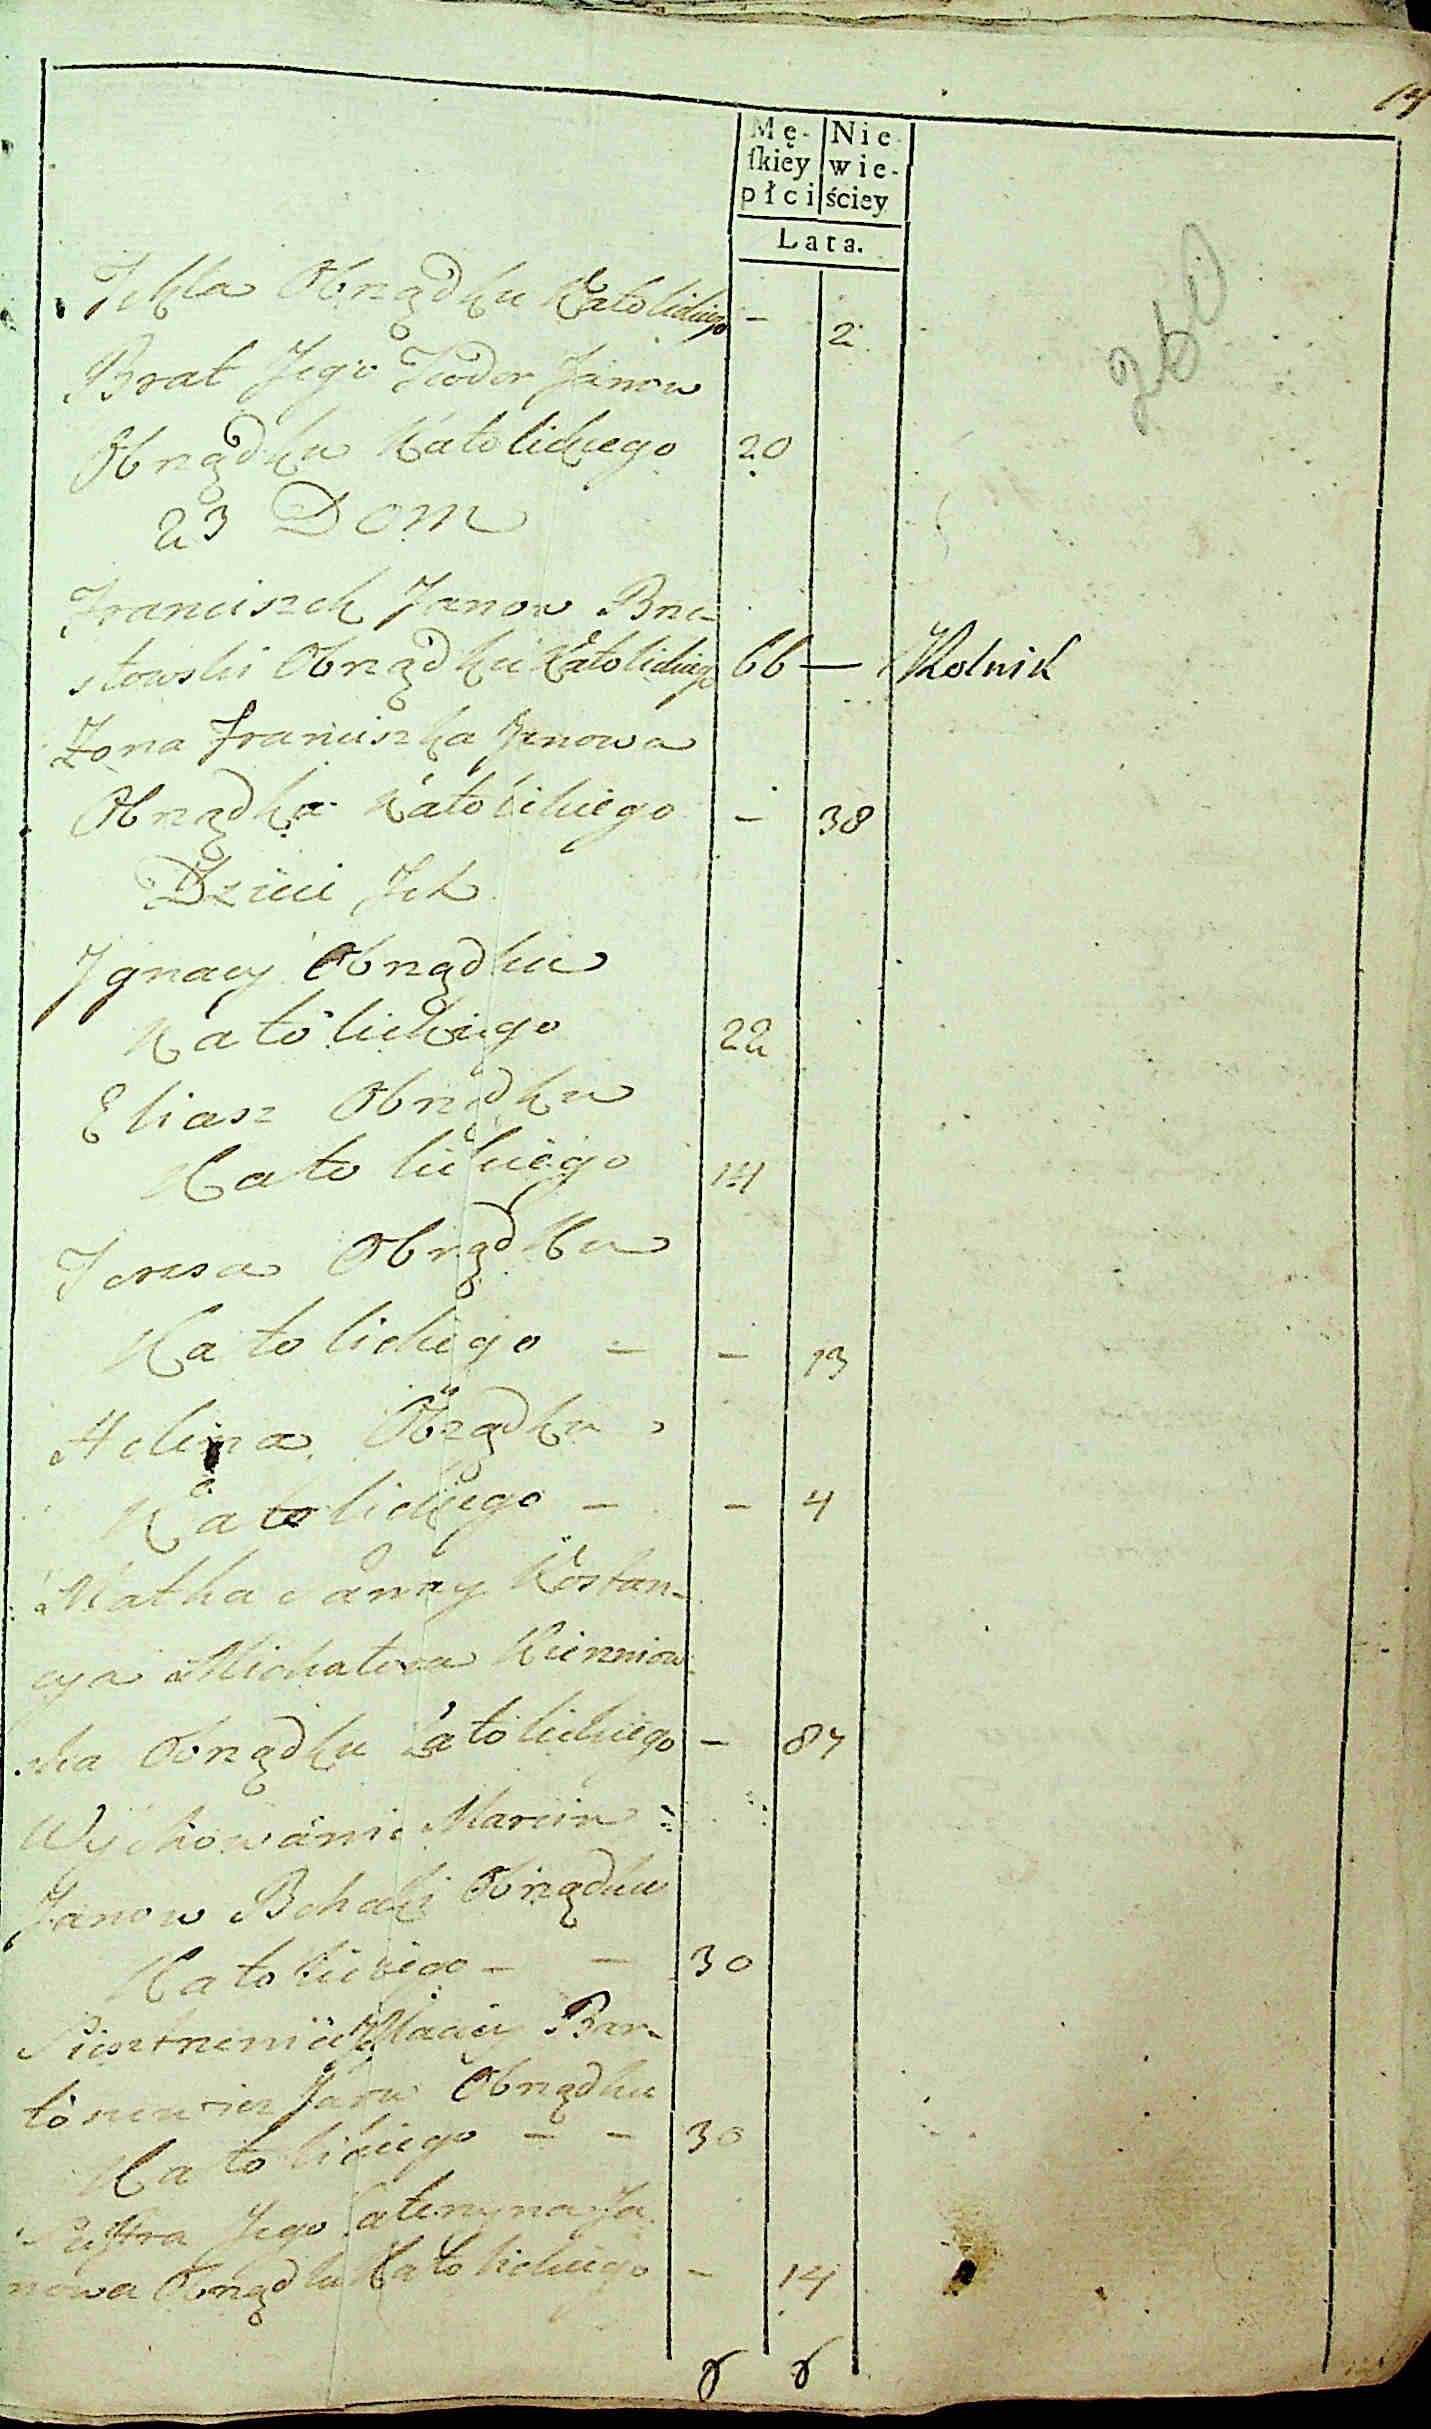 14
Mę- Nie
skiey wie-
płci ściey
Lata.
Tekla Obrządku Katolickiego - 2
Brat Jego Teodor Janow
Obrządku Katolickiego 20
23 Dom
Franciszek Janow Brze-
stowski Obrządku Katolickiego 66 — Rolnik
Żona Franciszka Janowa
Obrządku Katolickiego - 38
Dzieci Ich
Ignacy Obrządku
Katolickiego 22
Eliasz Obrządku
Katolickiego 14
Teresa Obrządku
Katolickiego - - 13
Helena Obrządku
Katolickiego - - 4
Matka Konstan-
cya Michałowa
ska Obrządku Katolickiego - 87
Wychowaniec Marcin
Janow Obrządku
Katolickiego - - 30
Siestrzeniec Maciey Bar-
toszewicz Jana Obrządku
Katolickiego - - 30
Siostra Jego Kateryna Ja
nowa Obrządku Katolickiego - 14